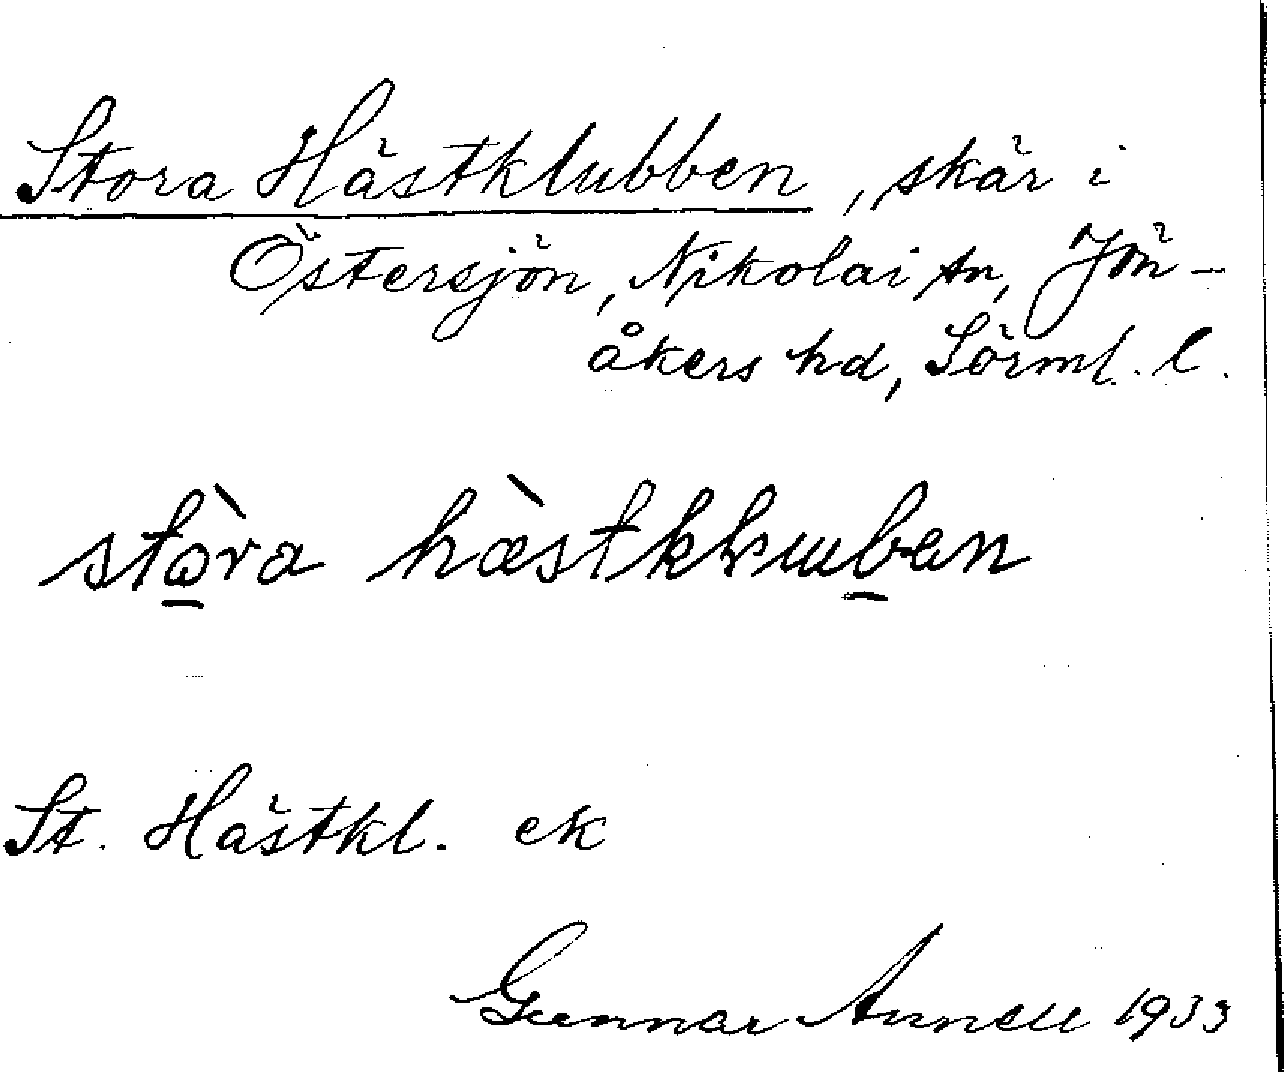 Stora Hästklubben, skär i
Östersjön, Nikolai sn, Jön-
åkers hd, Sörml. l.
stòra hæ̀stkluban
St. Hästkl. ek
Gunnar Annell 1933